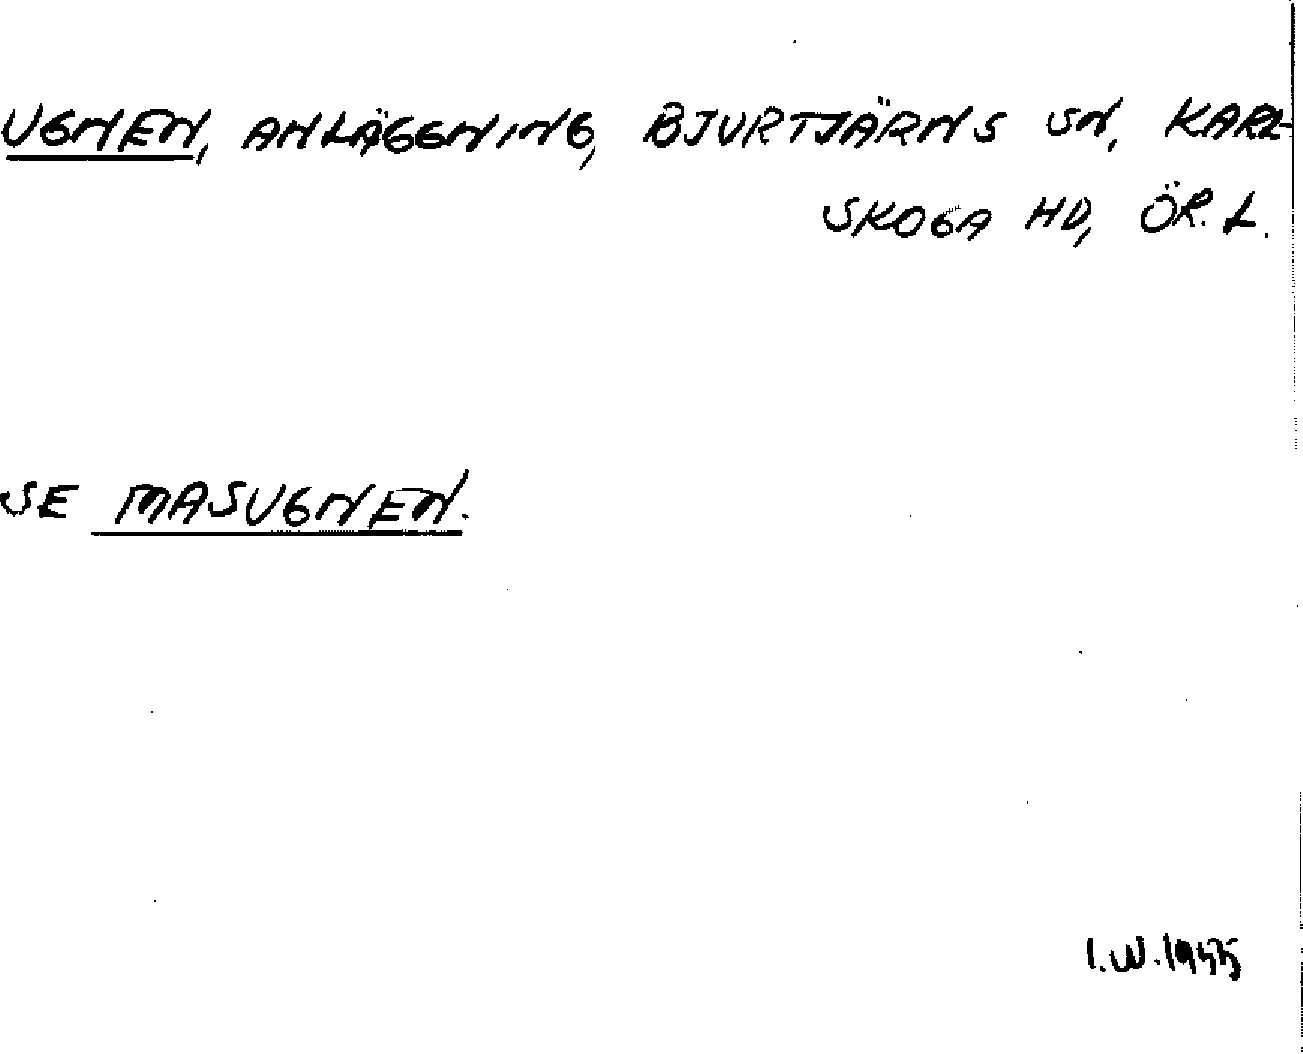 UGNEN, ANLÄGGNING, BJURTJÄRNS SN, KARL-
SKOGA HD, ÖR. L.
SE MASUGNEN.
I.W. 1955